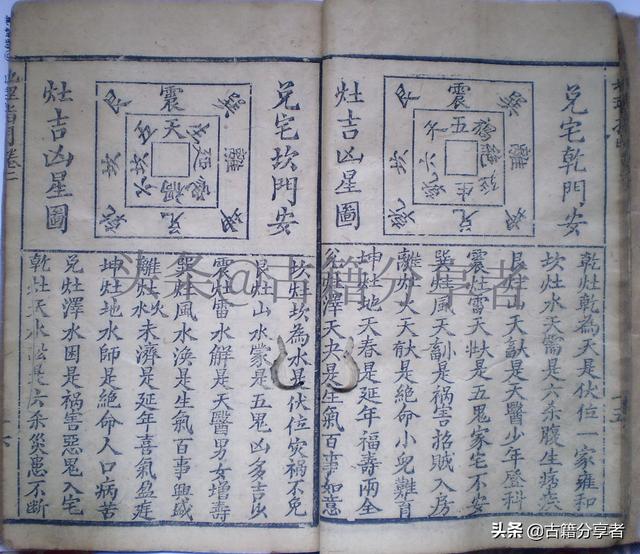 兑宅乾門安
灶吉凶星圖
巽
震
艮
離
坎
坤
兑
乾
五
六
生
乾灶乾為天是伏位一家雍和
坎灶水天需是六杀腹生病疾
艮灶山天畜是天醫少年登科
震灶雷天壮是五鬼家宅不安
巽灶風天畜是禍害招賊入房
離灶火天是絶命小兒難育
坤灶地天春是延年福壽兩全
兑灶澤天夬是生氣百事如意
十五
兑宅坎門安
灶吉凶星圖
巽
震
艮
離
坎
坤
兑
乾
天
禍
坎灶坎為水是伏位灾禍不免
艮灶山水蒙是五鬼凶多吉少
震灶雷水解是天醫男女增壽
巽灶風水渙是生氣百事興盛
離灶火水未濟是延年喜氣盈庭
坤灶地水師是絶命人口病苦
兑灶澤水困是禍害惡鬼入宅
乾灶天水訟是六杀災患不断
十六
头条@古籍分享者
头条 @古籍分享者